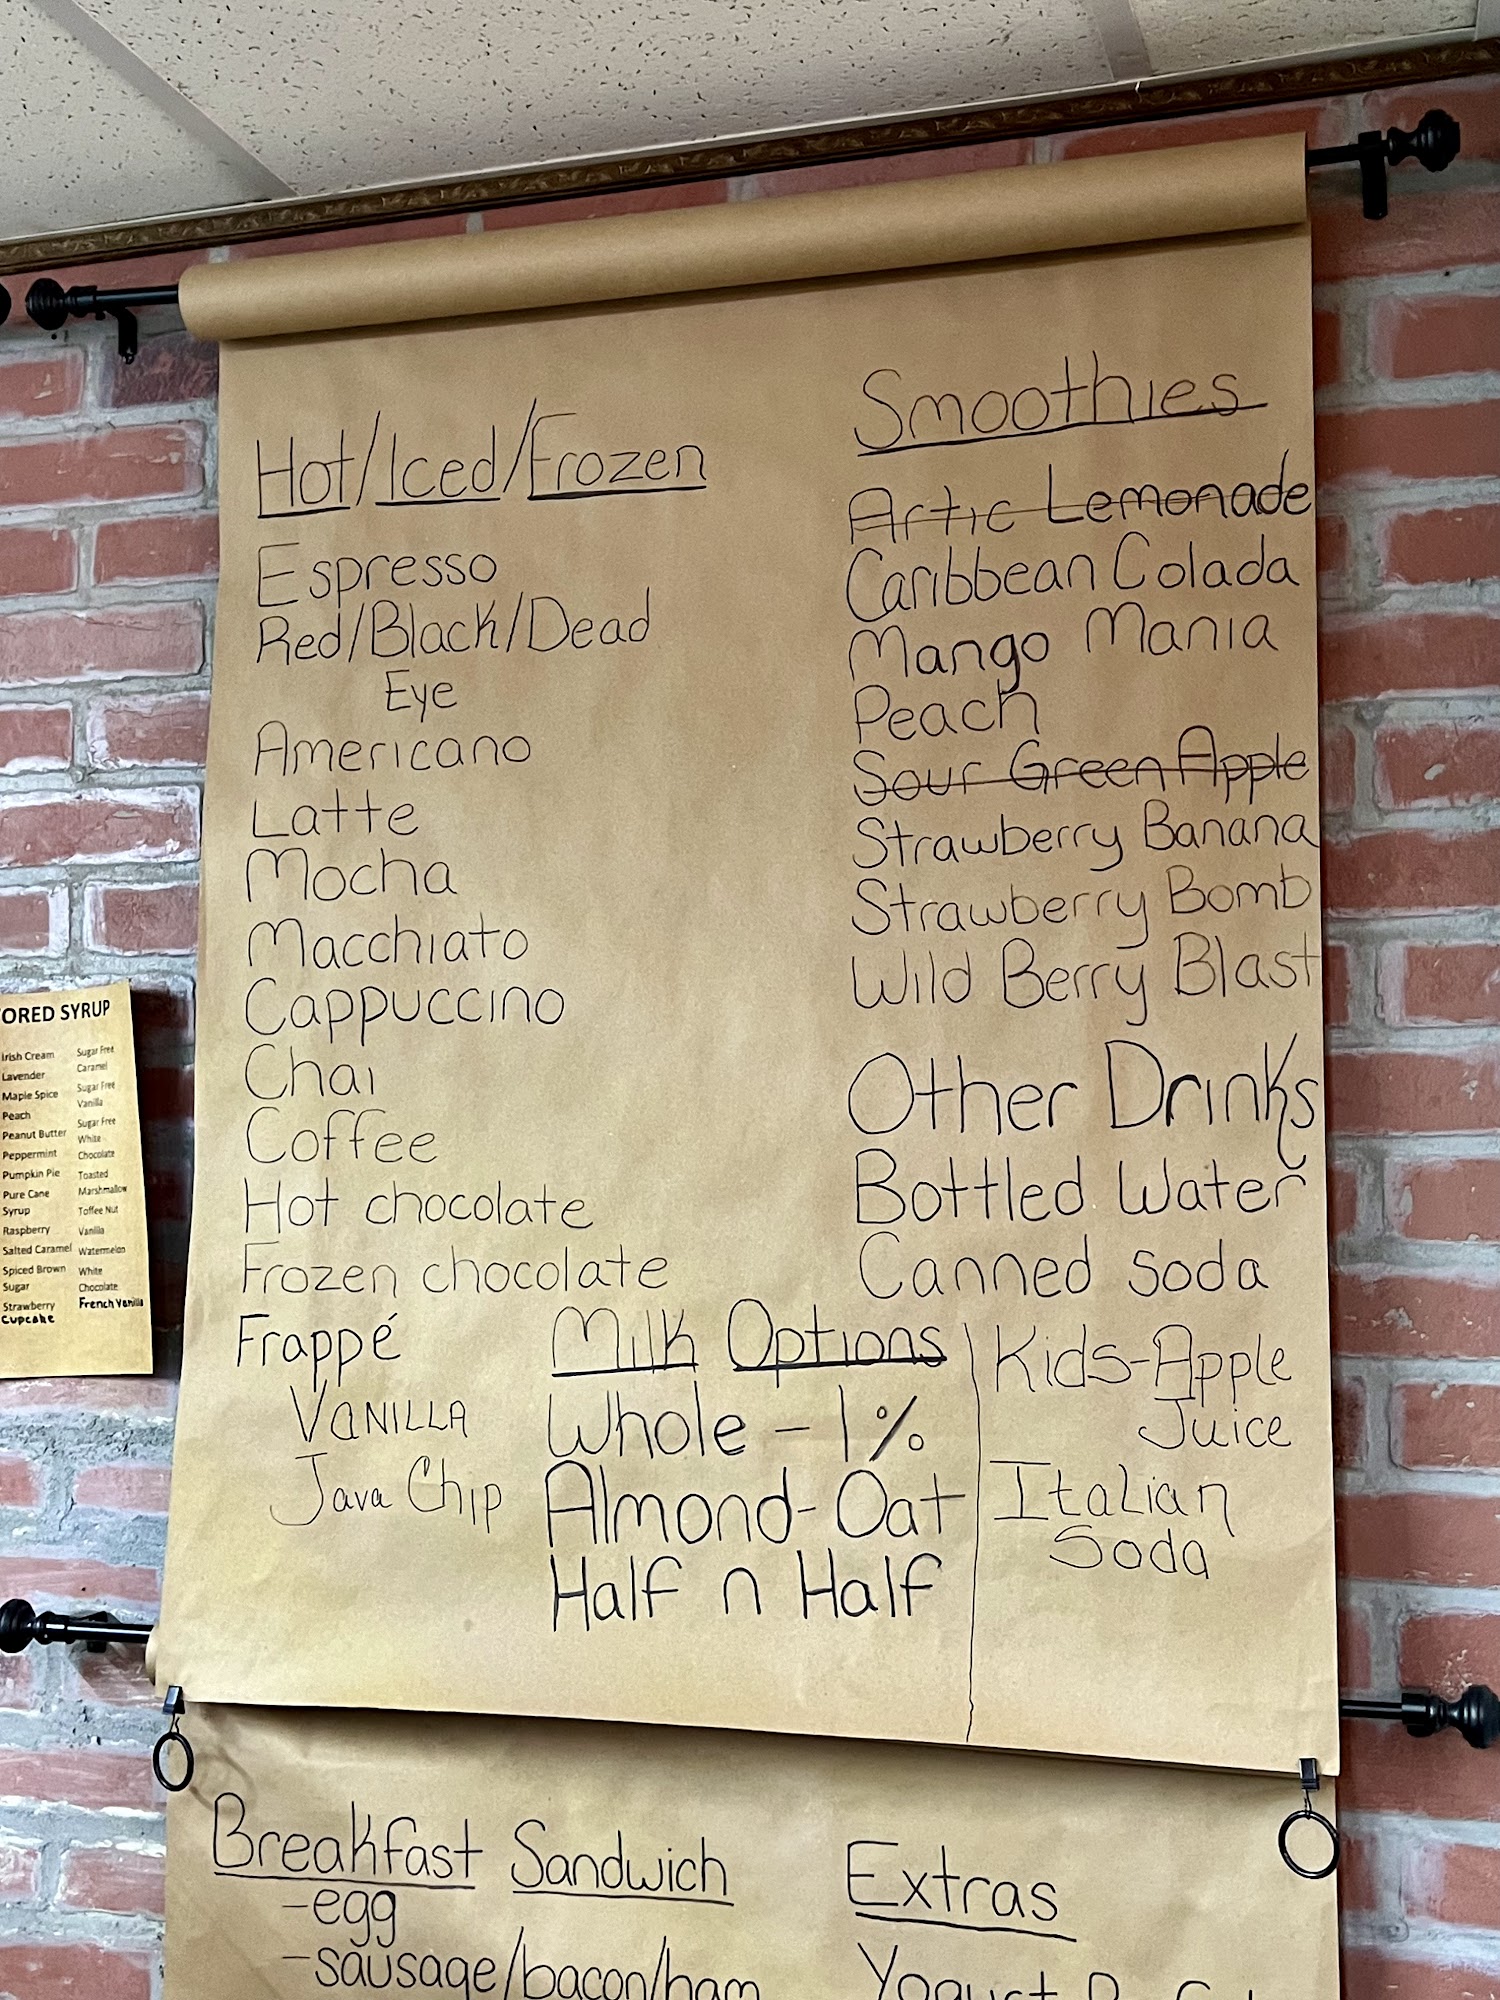 Hot/Iced/Frozen
Espresso
Red/Black/Dead
Eye
Americano
Latte
Mocha
Macchiato
Cappuccino
Chai
Coffee
Hot chocolate
Frozen chocolate
Frappé
VANILLA
Java Chip
Smoothies
Artic Lemonade
Caribbean Colada
Mango Mania
Peach
Sour Green Apple
Strawberry Banana
Strawberry Bomb
Wild Berry Blast
Other Drinks
Bottled Water
Canned soda
Kids-Apple
Juice
Italian
Soda
Milk Options
Whole - 1%
Almond-Oat
Half n Half
ORED SYRUP
Irish Cream
Lavender
Maple Spice
Peach
Peanut Butter
Peppermint
Pumpkin Pie
Pure Cane
Syrup
Raspberry
Salted Caramel
Spiced Brown
Sugar
Strawberry
Cupcake
Sugar Free
Caramel
Sugar Free
Vanilla
Sugar Free
White
Chocolate
Toasted
Marshmallow
Toffee Nut
Vanilla
Watermelon
White
Chocolate
French Vanilla
Breakfast Sandwich
-egg
-sausage/bacon/ham
Extras
Yogurt